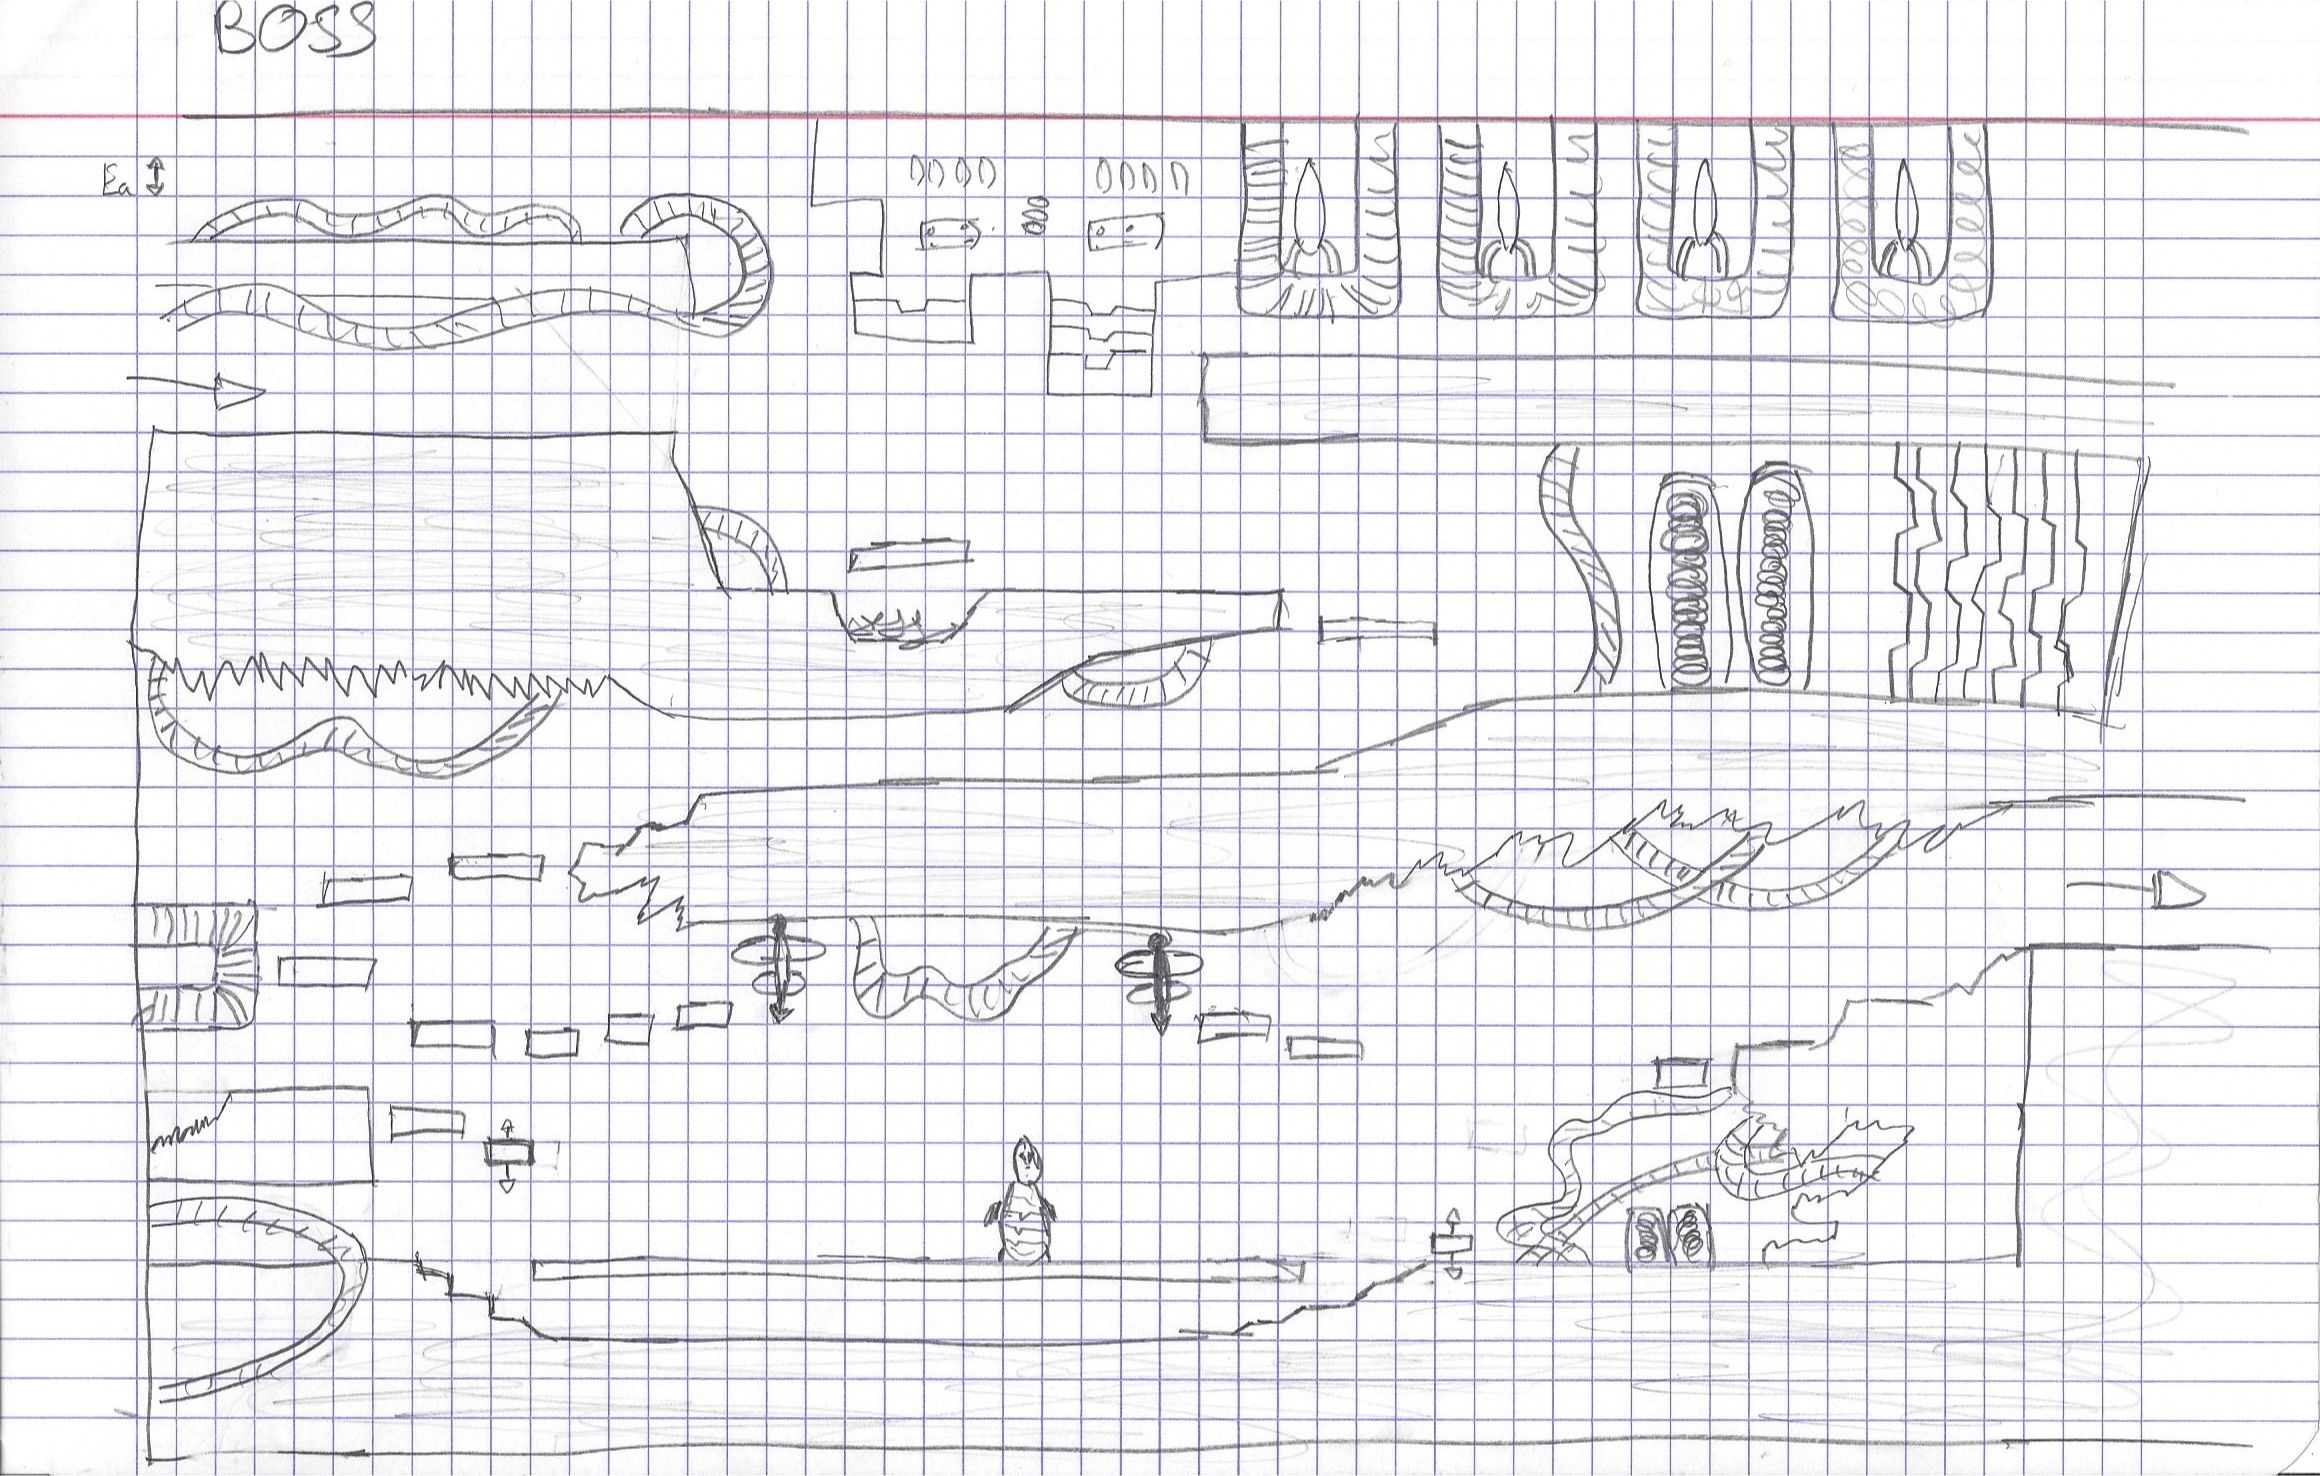 BOSS
Ea